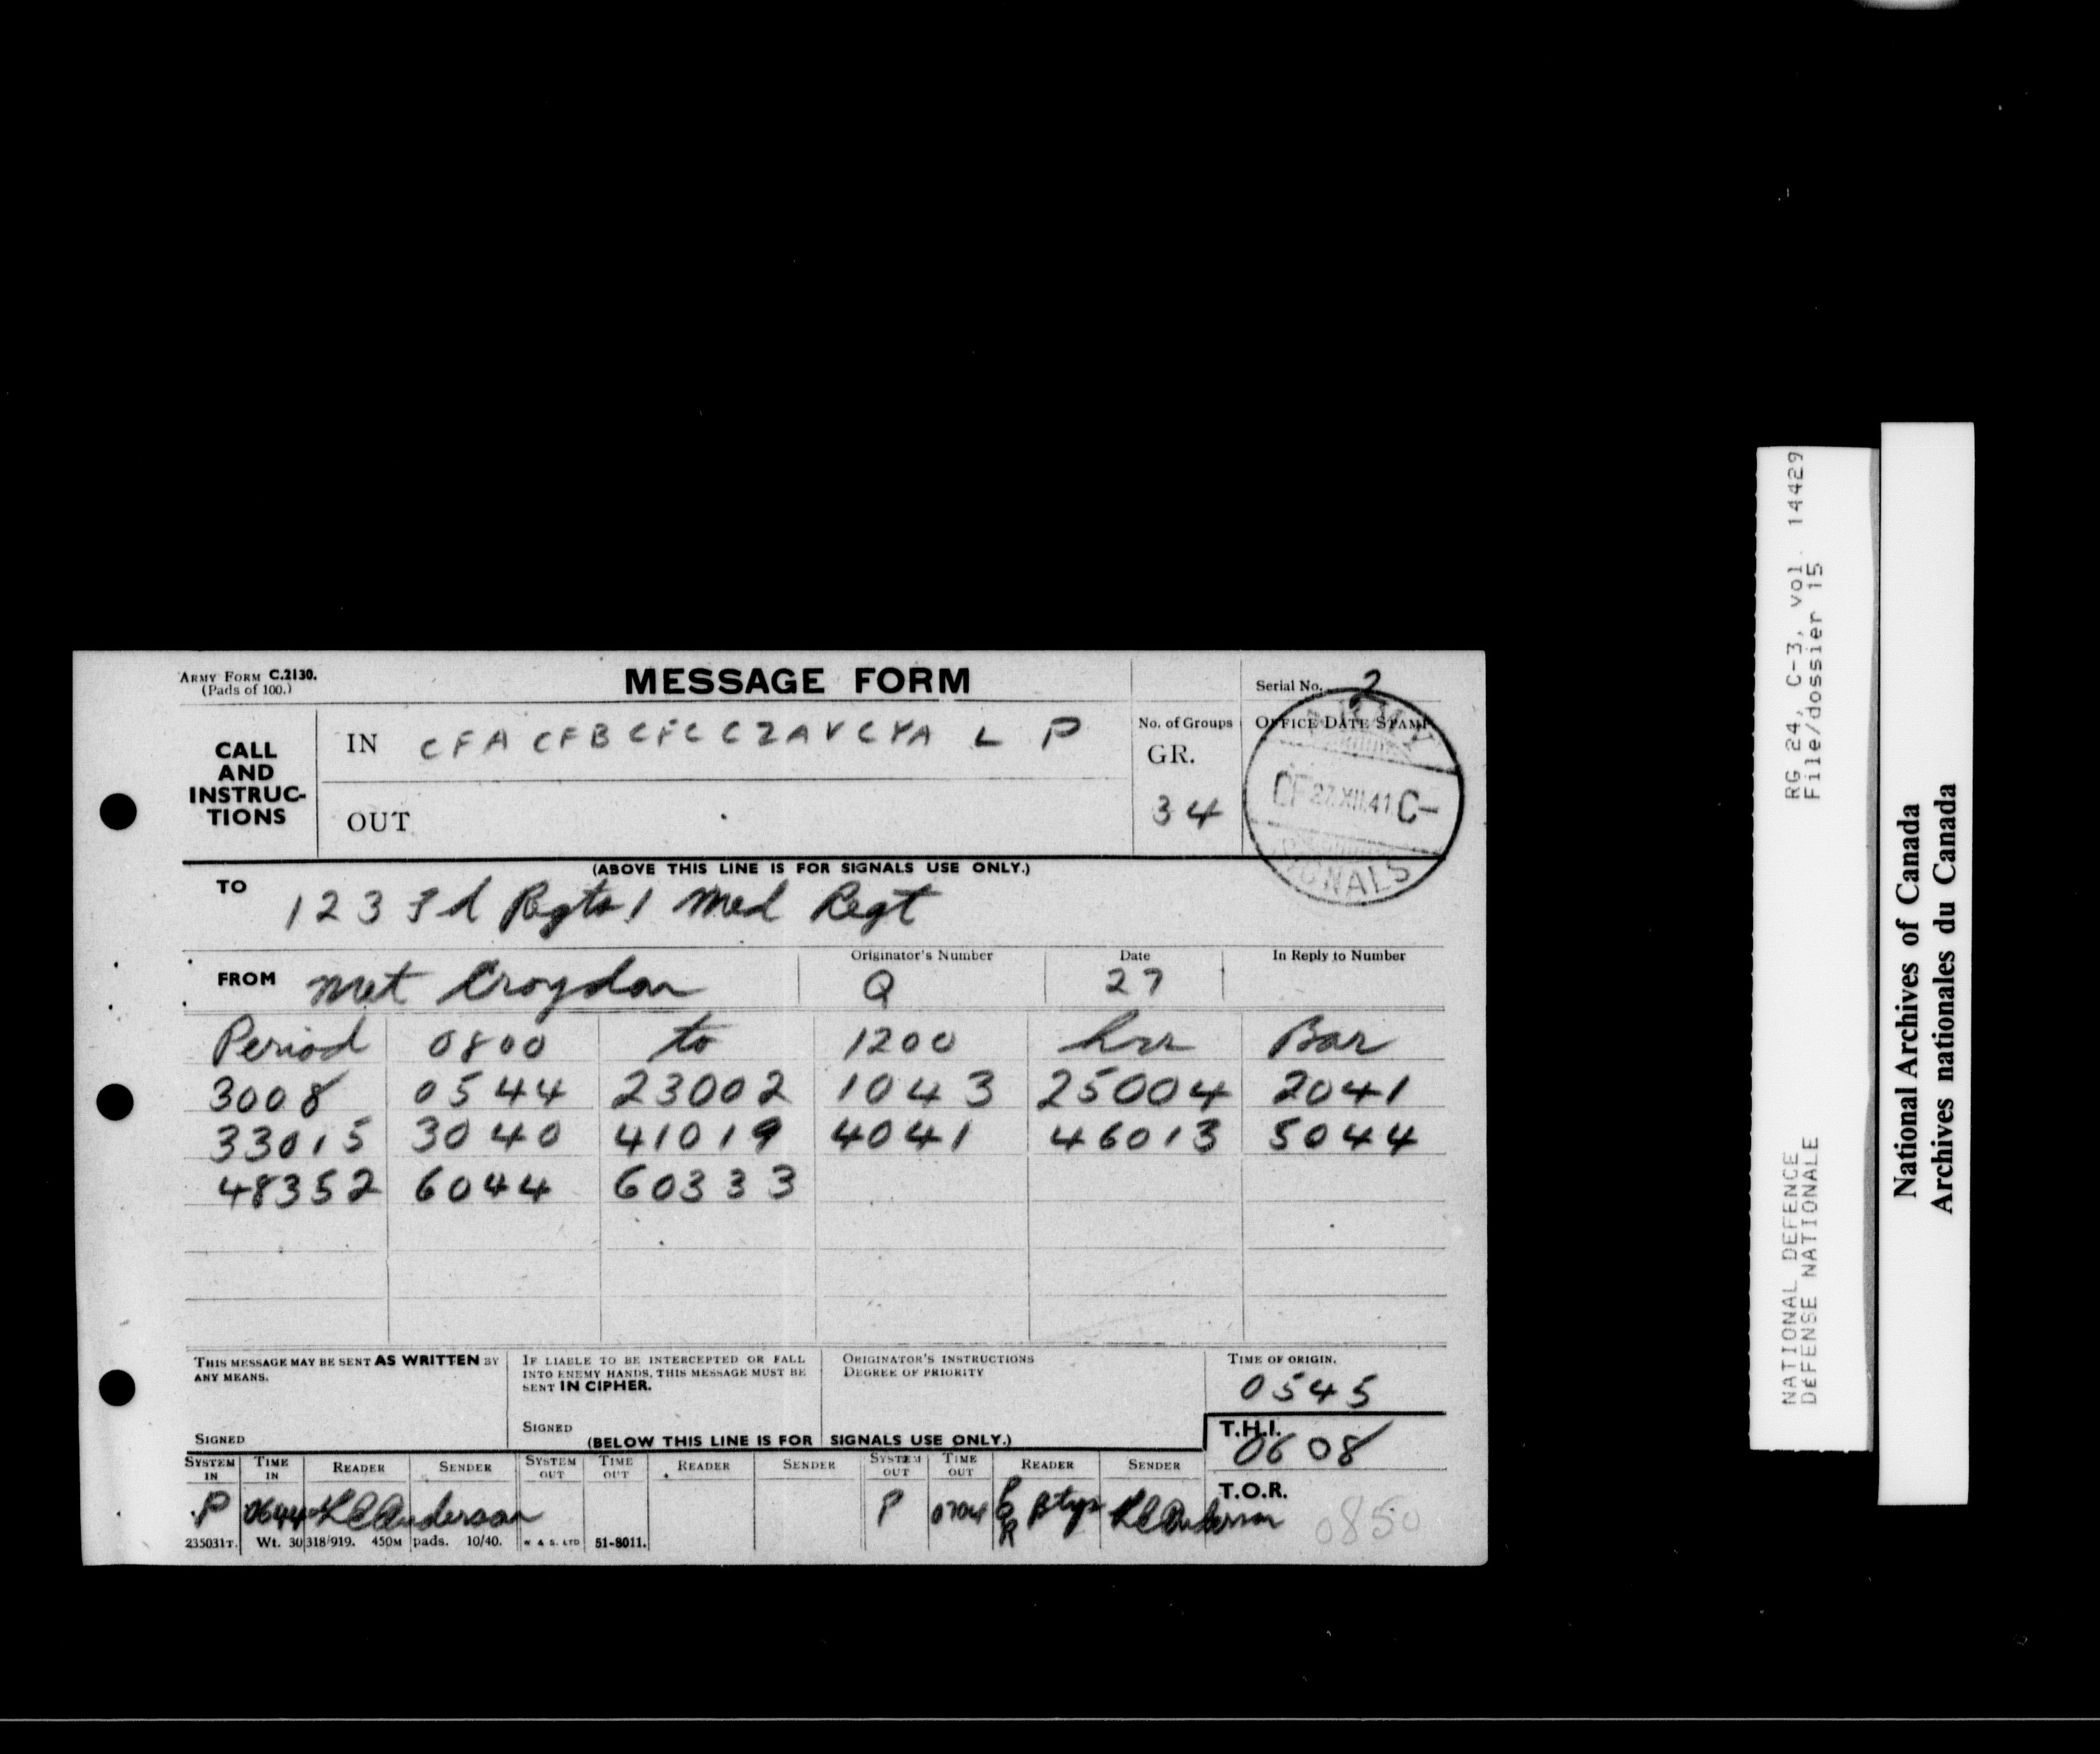 ARMY FORM C.2130.
(Pads of 100.)
MESSAGE FORM
Serial No. 2
CALL AND INSTRUC-TIONS
IN CFA CFB CFC CZA V CYA L P
OUT
No. of Groups
GR.
34
OFFICE DATE STAMP
ARMY
CF 27.XII.41 C-
SIGNALS
(ABOVE THIS LINE IS FOR SIGNALS USE ONLY.)
TO 1 2 3 Fd Regts 1 Med Regt
FROM Met Croydon
Originator's Number
Q
Date
27
In Reply to Number
Period 0800 to 1200 hrs Bar
3008 0544 23002 1043 25004 2041
33015 3040 41019 4041 46013 5044
48352 6044 60333
THIS MESSAGE MAY BE SENT AS WRITTEN BY ANY MEANS.
SIGNED
IF LIABLE TO BE INTERCEPTED OR FALL INTO ENEMY HANDS, THIS MESSAGE MUST BE SENT IN CIPHER.
SIGNED
ORIGINATOR'S INSTRUCTIONS
DEGREE OF PRIORITY
TIME OF ORIGIN.
0545
(BELOW THIS LINE IS FOR SIGNALS USE ONLY.)
T.H.I.
0608
SYSTEM IN TIME IN READER SENDER SYSTEM OUT TIME OUT READER SENDER SYSTEM OUT TIME OUT READER SENDER
P 0644 Anderson P 0704 Btys Anderson
T.O.R.
0850
235031T. Wt. 30318/919. 450M pads. 10/40. W & S. LTD 51-8011.
RG 24, C-3, vol. 14429
File/dossier 15
NATIONAL DEFENCE
DÉFENSE NATIONALE
National Archives of Canada
Archives nationales du Canada